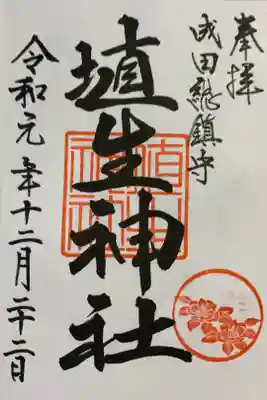 奉拝
成田総鎮守
埴生神社
令和元年十二月二十二日